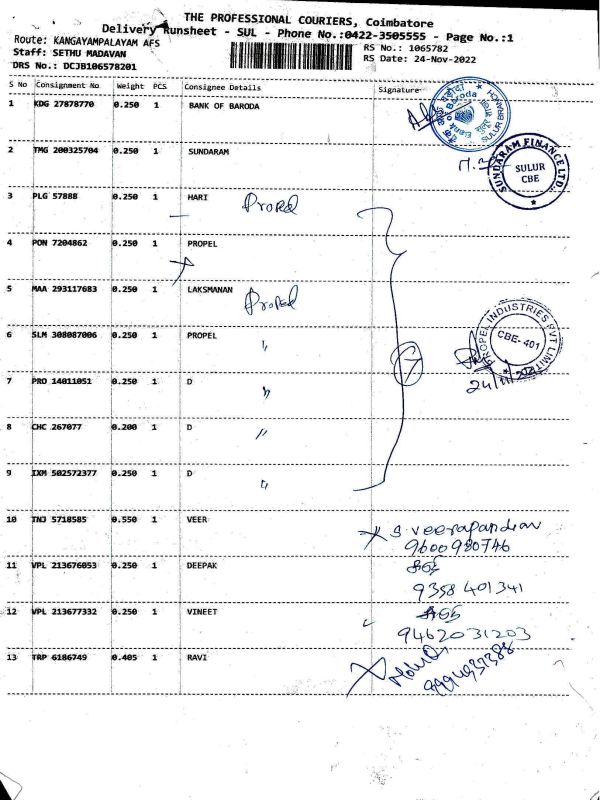 THE PROFESSIONAL COURIERS, Coimbatore
Delivery Runsheet - SUL - Phone No.:0422-3505555 - Page No.:1
Route: KANGAYAMPALAYAM AFS
RS No.: 1065782
Staff: SETHU MADAVAN
RS Date: 24-Nov-2022
DRS No.: DCJB106578201
S No Consignment No Weight PCS Consignee Details Signature
1 KDG 27878770 0.250 1 BANK OF BARODA
Bank of Baroda
SULUR BRANCH
2 TMG 200325704 0.250 1 SUNDARAM
SUNDARAM FINANCE LTD.
SULUR
CBE
3 PLG 57888 0.250 1 HARI Propel
4 PON 7204862 0.250 1 PROPEL
5 MAA 293117683 0.250 1 LAKSMANAN Propel
6 SLM 308087006 0.250 1 PROPEL "
PROPEL INDUSTRIES PVT LIMITED
CBE-401
7
7 PRO 14011051 0.250 1 D "
8 CHC 267077 0.200 1 D "
9 IXM 502572377 0.250 1 D "
10 TNJ 5718585 0.550 1 VEER
S. Veerapandian
9600980746
11 VPL 213676053 0.250 1 DEEPAK
9358 401341
12 VPL 213677332 0.250 1 VINEET
9462031203
13 TRP 6186749 0.405 1 RAVI